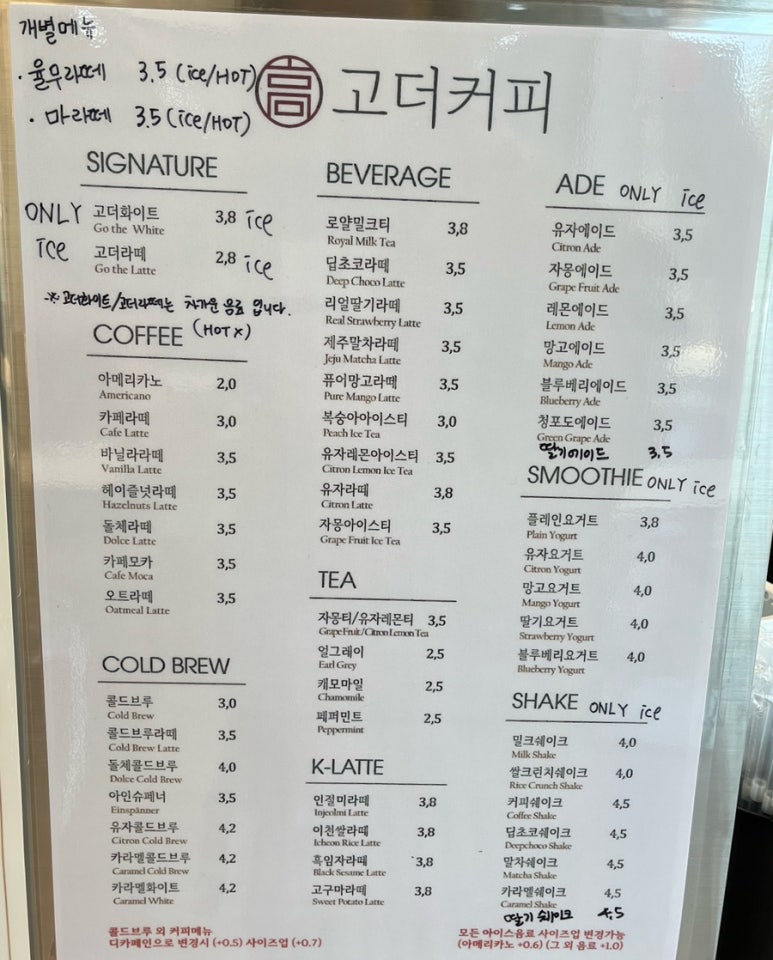 개별메뉴
· 율무라떼 3.5 (ice/HOT)
· 마라떼 3.5 (ice/HOT)
高 고더커피
SIGNATURE
ONLY ice
고더화이트 3,8 ice
Go the White
고더라떼 2,8 ice
Go the Latte
※ 고더화이트/고더라떼는 차가운 음료 입니다.
(HOT x)
COFFEE
아메리카노 2,0
Americano
카페라떼 3,0
Cafe Latte
바닐라라떼 3,5
Vanilla Latte
헤이즐넛라떼 3,5
Hazelnuts Latte
돌체라떼 3,5
Dolce Latte
카페모카 3,5
Cafe Moca
오트라떼 3,5
Oatmeal Latte
COLD BREW
콜드브루 3,0
Cold Brew
콜드브루라떼 3,5
Cold Brew Latte
돌체콜드브루 4,0
Dolce Cold Brew
아인슈페너 3,5
Einspänner
유자콜드브루 4,2
Citron Cold Brew
카라멜콜드브루 4,2
Caramel Cold Brew
카라멜화이트 4,2
Caramel White
콜드브루 외 커피메뉴
디카페인으로 변경시 (+0.5) 사이즈업 (+0.7)
BEVERAGE
로얄밀크티 3,8
Royal Milk Tea
딥초코라떼 3,5
Deep Choco Latte
리얼딸기라떼 3,5
Real Strawberry Latte
제주말차라떼 3,5
Jeju Matcha Latte
퓨어망고라떼 3,5
Pure Mango Latte
복숭아아이스티 3,0
Peach Ice Tea
유자레몬아이스티 3,5
Citron Lemon Ice Tea
유자라떼 3,8
Citron Latte
자몽아이스티 3,5
Grape Fruit Ice Tea
TEA
자몽티/유자레몬티 3,5
Grape Fruit / Citron Lemon Tea
얼그레이 2,5
Earl Grey
캐모마일 2,5
Chamomile
페퍼민트 2,5
Peppermint
K-LATTE
인절미라떼 3,8
Injeolmi Latte
이천쌀라떼 3,8
Icheon Rice Latte
흑임자라떼 3,8
Black Sesame Latte
고구마라떼 3,8
Sweet Potato Latte
ADE ONLY ice
유자에이드 3,5
Citron Ade
자몽에이드 3,5
Grape Fruit Ade
레몬에이드 3,5
Lemon Ade
망고에이드 3,5
Mango Ade
블루베리에이드 3,5
Blueberry Ade
청포도에이드 3,5
Green Grape Ade
딸기에이드 3.5
SMOOTHIE ONLY ice
플레인요거트 3,8
Plain Yogurt
유자요거트 4,0
Citron Yogurt
망고요거트 4,0
Mango Yogurt
딸기요거트 4,0
Strawberry Yogurt
블루베리요거트 4,0
Blueberry Yogurt
SHAKE ONLY ice
밀크쉐이크 4,0
Milk Shake
쌀크런치쉐이크 4,0
Rice Crunch Shake
커피쉐이크 4,5
Coffee Shake
딥초코쉐이크 4,5
Deepchoco Shake
말차쉐이크 4,5
Matcha Shake
카라멜쉐이크 4,5
Caramel Shake
딸기 쉐이크 4.5
모든 아이스음료 사이즈업 변경가능
(아메리카노 +0.6) (그 외 음료 +1.0)